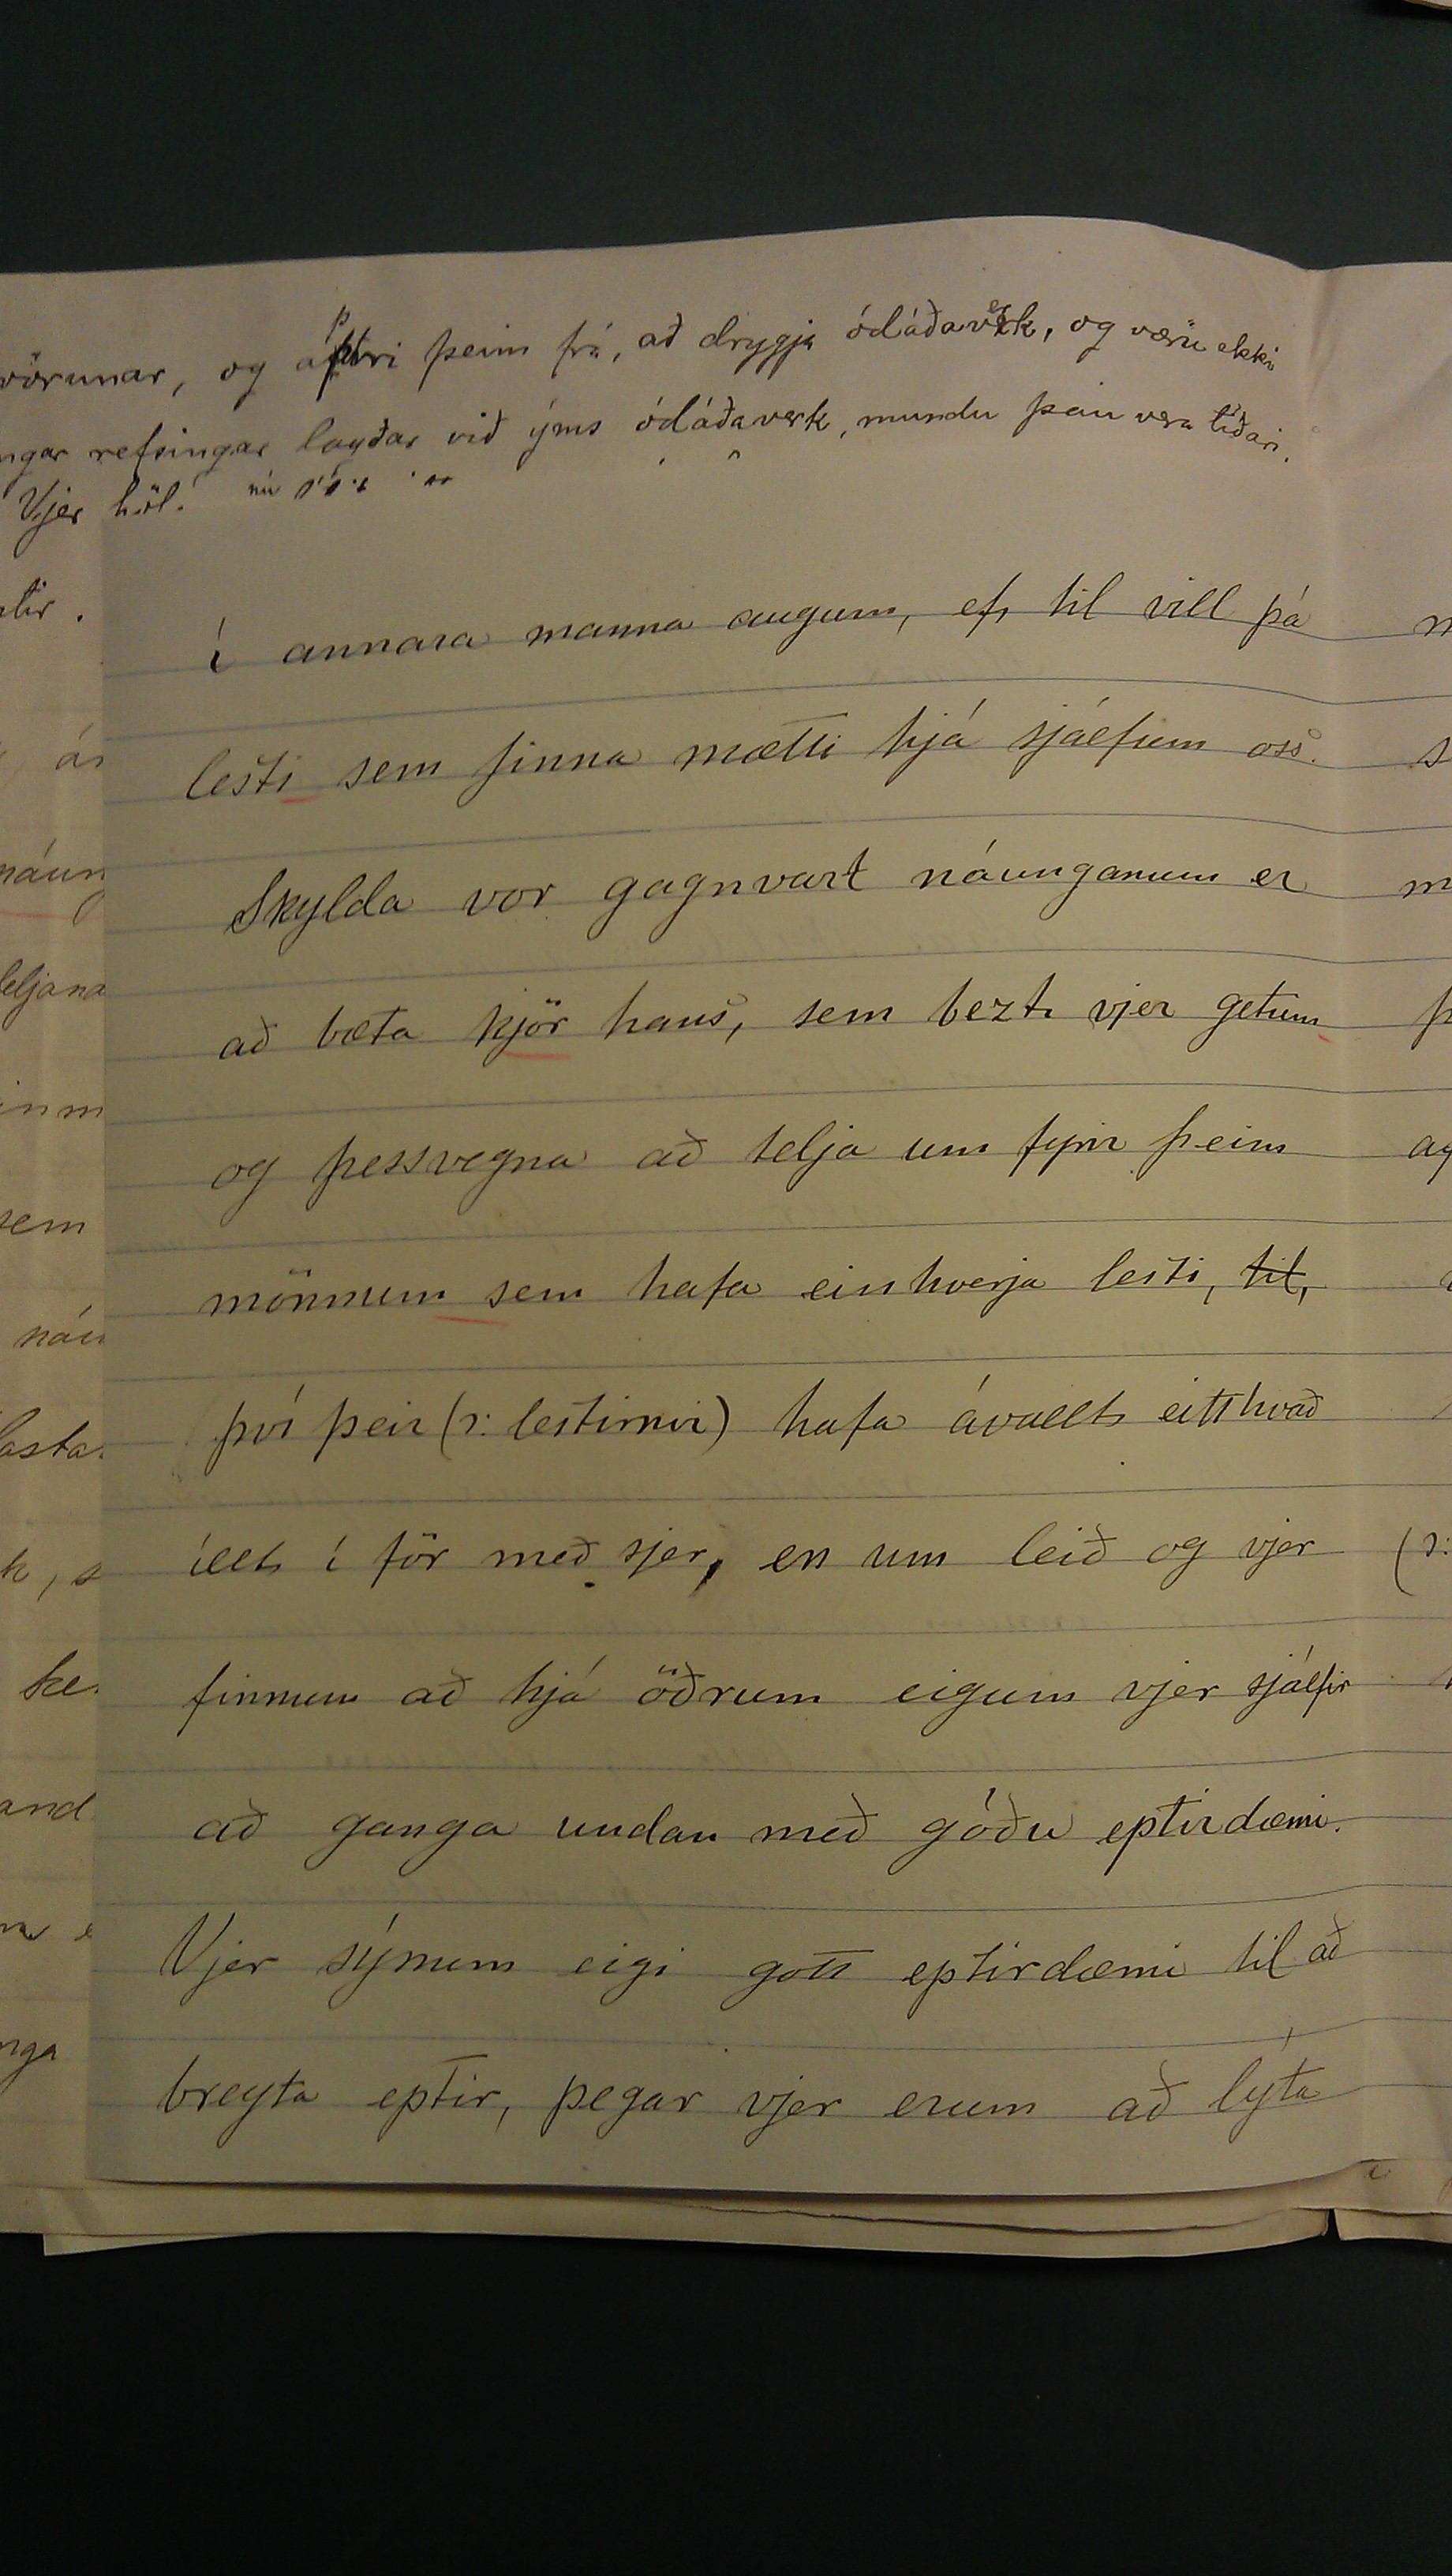 vörunar, og aptri þeim frá, að drygja ódáðaverk, og væru ekki
ngar refsingar lagðar við ýms ódáðaverk, mundu þau vera tíðari.
Vjer
í annara manna augum, ef til vill þá
lesti sem finna mætti hjá sjálfum oss.
Skylda vor gagnvart náunganum er
að bæta kjör hans, sem bezt vjer getum
og þessvegna að telja um fyrir þeim
mönnum sem hafa einhverja lesti, til,
því þeir (ɔ: lestirnir) hafa ávallt eitthvað
íllt í för með sjer, en um leið og vjer
finnum að hjá öðrum eigum vjer sjálfir
að ganga undan með góðu eptirdæmi.
Vjer sýnum eigi gott eptirdæmi til að
breyta eptir, þegar vjer erum að lýta